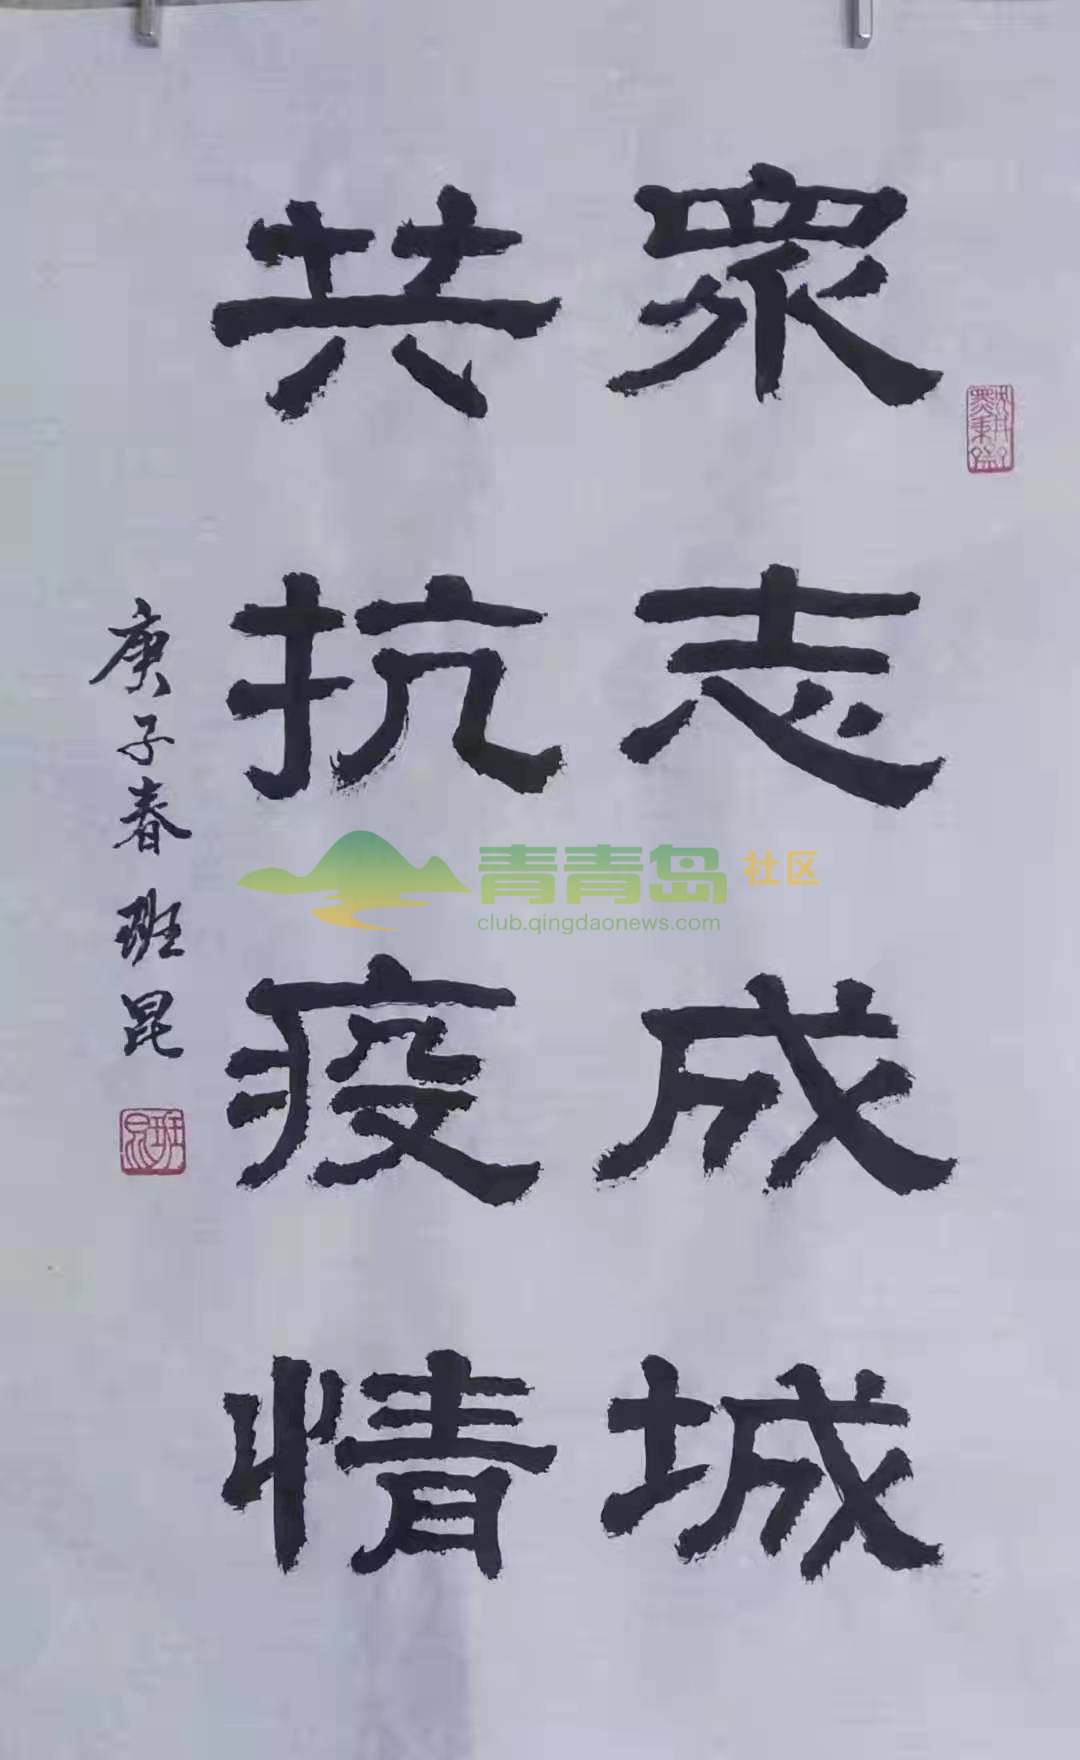 眾志成城
共抗疫情
庚子春 班昆
班昆
青青岛社区
club.qingdaonews.com